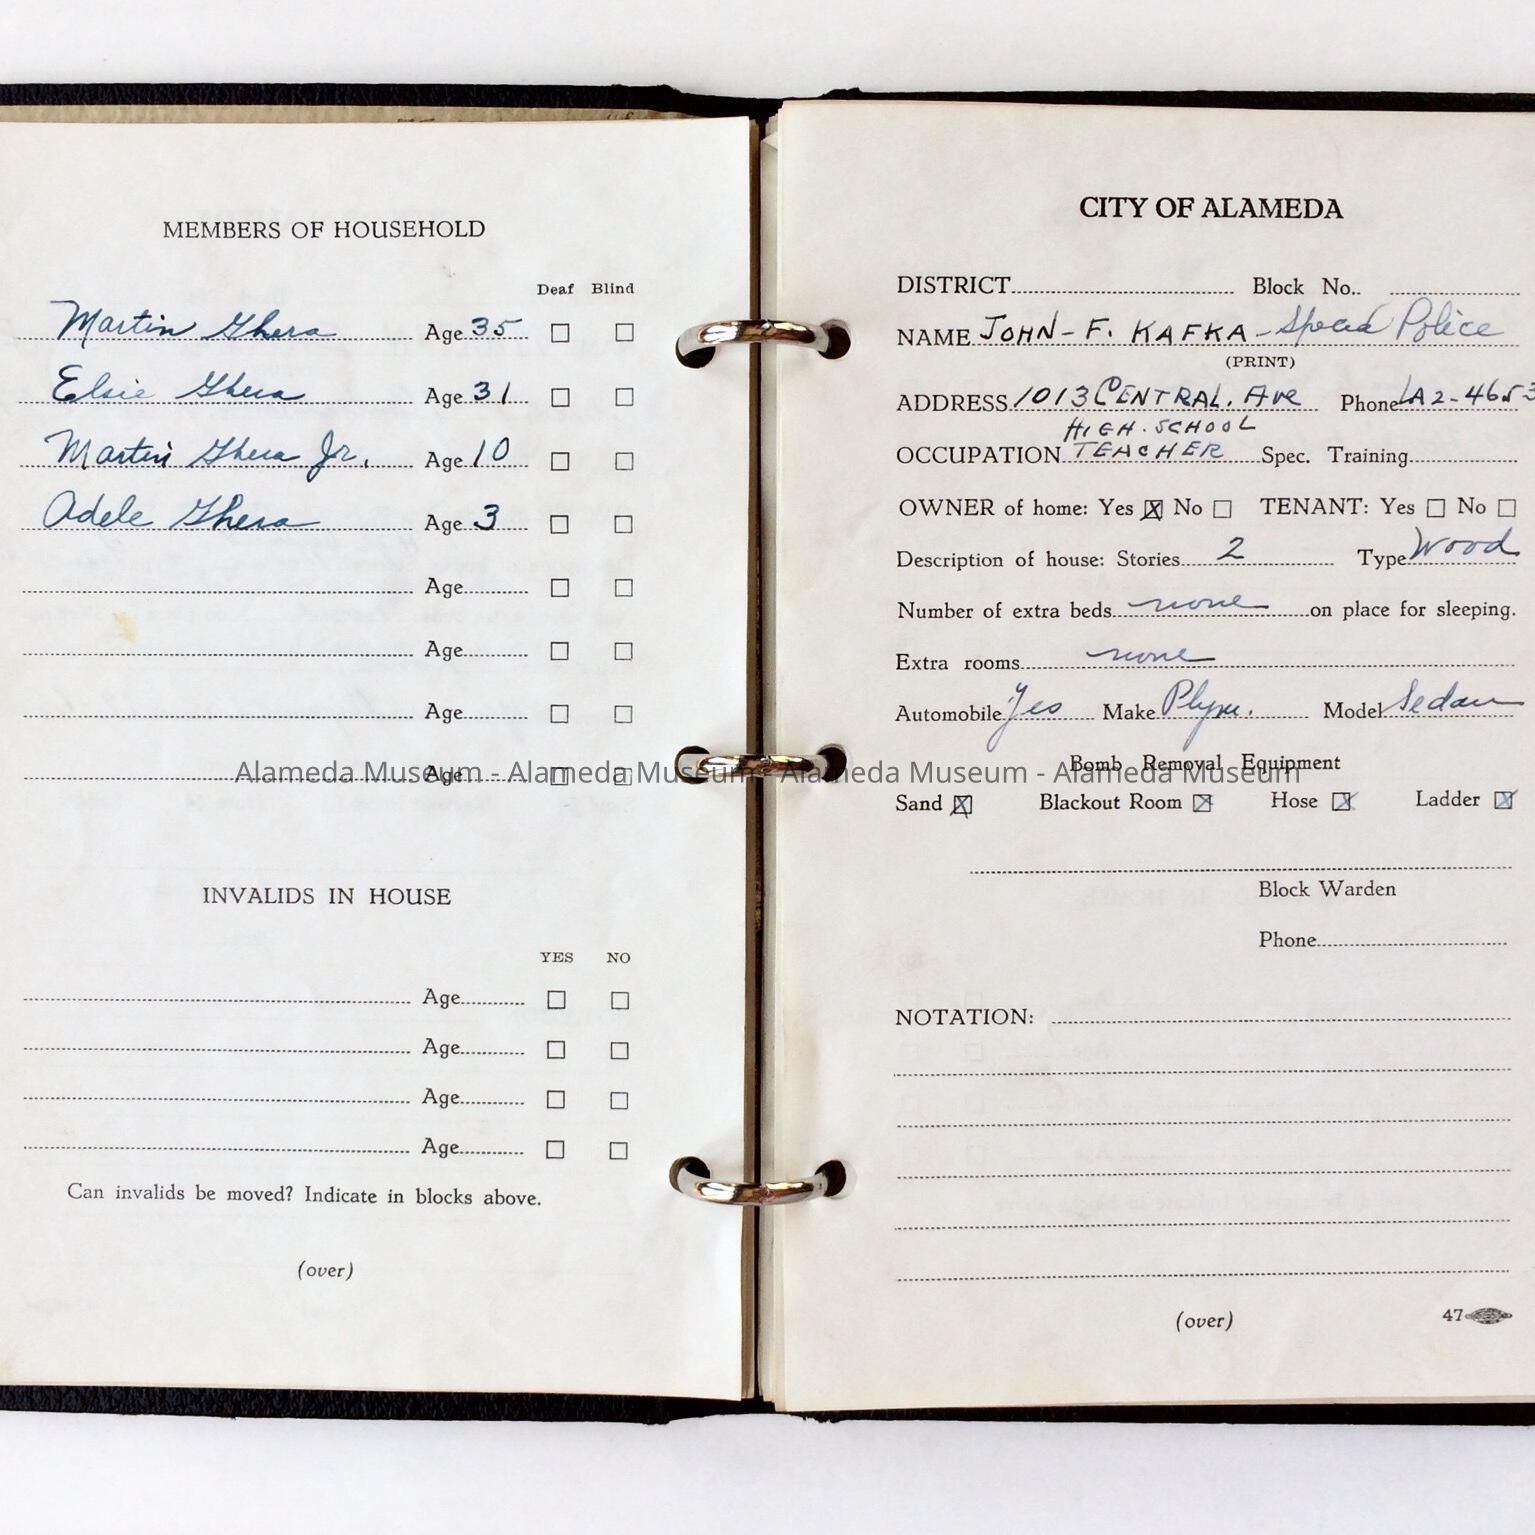 MEMBERS OF HOUSEHOLD
Deaf Blind
Martin Ghera Age 35
Elsie Ghera Age 31
Martin Ghera Jr. Age 10
Adele Ghera Age 3
Age
Age
Age
Age
INVALIDS IN HOUSE
YES NO
Age
Age
Age
Age
Can invalids be moved? Indicate in blocks above.
(over)
CITY OF ALAMEDA
DISTRICT Block No..
NAME JOHN - F. KAFKA - Special Police
(PRINT)
ADDRESS 1013 CENTRAL. Ave Phone LA 2-4653
HIGH. SCHOOL
OCCUPATION TEACHER Spec. Training
OWNER of home: Yes No TENANT: Yes No
Description of house: Stories 2 Type Wood
Number of extra beds none on place for sleeping.
Extra rooms none
Automobile Yes Make Plym. Model Sedan
Bomb Removal Equipment
Alameda Museum - Alameda Museum - Alameda Museum - Alameda Museum
Sand Blackout Room Hose Ladder
Block Warden
Phone
NOTATION:
(over) 47